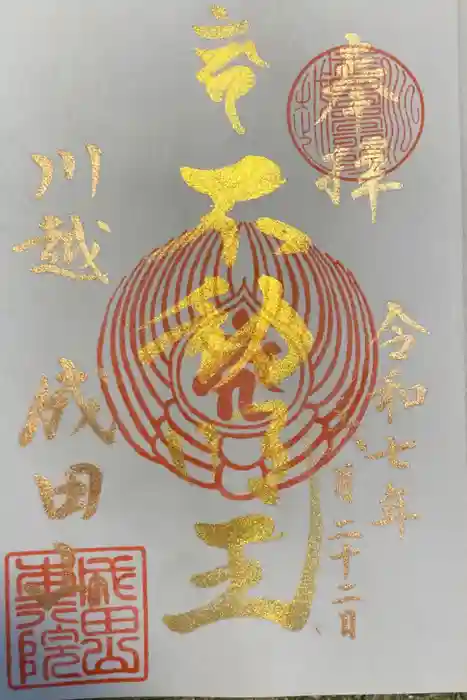 奉拝
令和七年
月二十二日
不動明王
川越
成田山
成田山
本行院